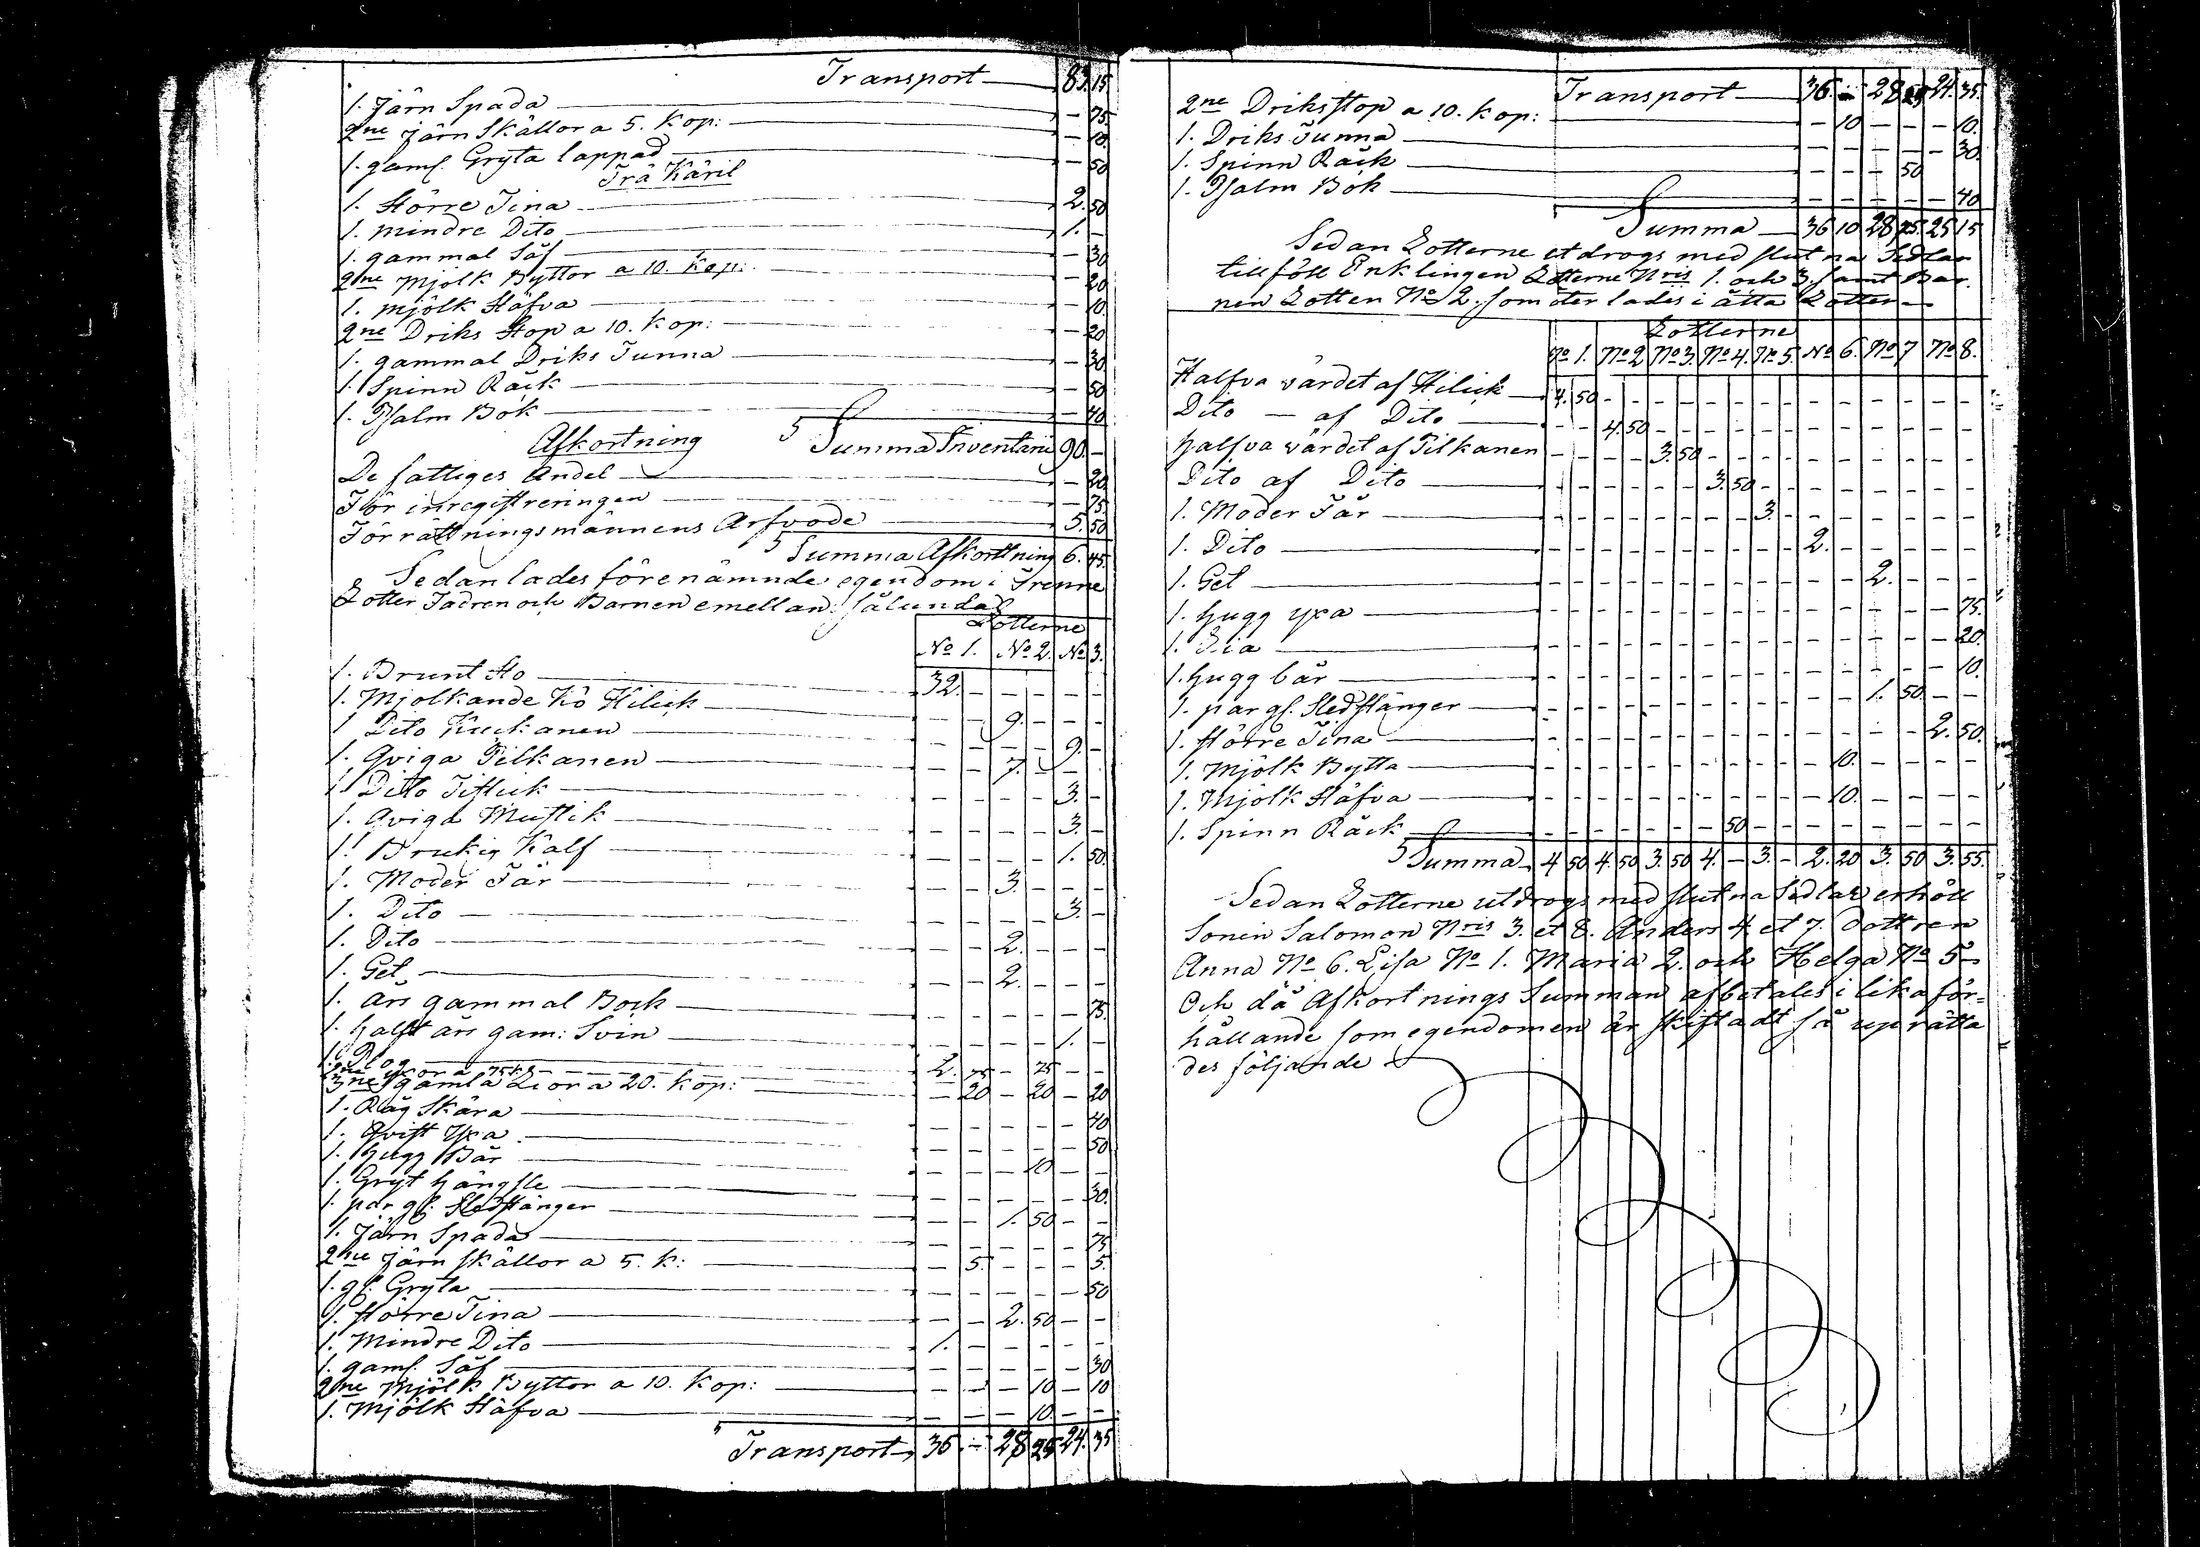 Transport 83. 15
1. Järn Spada - 75.
2ne Järn Skällor a 5. Kop: - 10.
1. gaml. Gryta lappad - 50
Trä Käril
1. Större Tina 2. 50
1. mindre Dito 1. -
1. gammal Såf - 30
2ne Mjölk Byttor a 10. Kop: - 20
1. mjölk Stäfva - 10.
2ne Driks Stop a 10. Kop: - 20
1. gammal Driks Tunna - 30
1. Spinn Råck - 50
1. Psalm Bok - 40
Afkortning Summa Inventarii 90. -
De fattiges Andel - 20
För inregistreringen - 75
Förrättningsmännens Arfvode 5. 50
Summa Afkortning 6. 45.
Sedan lades förenämnde egendom i Trenne
Lotter Fadren och Barnen emellan: sålunda
Lotterne
No 1. No 2. No 3.
1. Brunt Sto 32. - - - - -
1. Mjolkande Ko Hilick - - 9. - - -
1 Dito Kuckanen - - - - 9. -
1. Qviga Pilkanen - - 7. - - -
1 Dito Tistick - - - - 3. -
1. Qviga Mustik - - - - 3. -
1. Brukig Kalf - - - - 1. 50.
1. Moder Får - - 3. - - -
1. Dito - - - - 3. -
1. Dito - - 2. - - -
1. Get - - 2. - - -
1. års gammal Bock - - - - - 75.
1. halft års gam: Svin - - - - 1. -
1. Plog
2. 75 - 75 - -
3ne gamla Lior a 20. Kop: - 20 - 20 - 20
1. Råg Skära - - - - - 40
1. Qvist Yxa - - - - - 50
1. Hugg Bår - - - 10 - -
1. Gryt hängsle - - - - - 30.
1. par gl. Sledstänger - - 1. 50 - -
1. Järn Spada - - - - - 75
2ne Järn skällor a 5. k: - 5. - - - 5.
1. gl. Gryta - - - - - 50
1. Större Tina - - 2. 50 - -
1. Mindre Dito 1. - - - - -
1. gaml. Såf - - - - - 30
2ne Mjölk Byttor a 10. Kop: - - - 10 - 10
1. Mjölk Stäfva - - - 10. - -
Transport 36 - 28 25 24. 35
Transport 36. - 28 25 24. 35.
2ne Driksstop a 10. Kop: - 10 - - - 10.
1. Driks Tunna - - - - - 30.
1. Spinn Råck - - - 50 - -
1. Psalm Bok - - - - - 40
Summa 36 10 28 75 25 15
Sedan Lotterne utdrogs med slutna Sedlar
tillföll Enklingen Lotterne Nris 1. och 3 samt Bar-
nen Lotten No 2. som åter lades i åtta Lotter
Lotterne
No 1. No 2 No 3. No 4. No 5 No 6. No 7 No 8.
Halfva värdet af Hilick 4. 50 - - - - - - - - - - - - - -
Dito - af Dito - - 4. 50 - - - - - - - - - - - -
halfva värdet af Pilkanen - - - - 3. 50 - - - - - - - - - -
Dito af Dito - - - - - - 3. 50 - - - - - - - -
1. Moder Får - - - - - - - - 3. - - - - - - -
1. Dito - - - - - - - - - - 2. - - - - -
1. Get - - - - - - - - - - - - 2. - - -
1. Hugg yxa - - - - - - - - - - - - - - - 75.
1. Lia - - - - - - - - - - - - - - - 20.
1. hugg bår - - - - - - - - - - - - - - - 10.
1. par gl. Sledstänger - - - - - - - - - - - - 1. 50 - -
1. större Tina - - - - - - - - - - - - - - 2. 50.
1. Mjölk Bytta - - - - - - - - - - - 10. - - - -
1. Mjölk Stäfva - - - - - - - - - - - 10. - - - -
1. Spinn Råck - - - - - - - 50 - - - - - - - -
Summa 4 50 4. 50 3. 50 4. - 3. - 2. 20 3. 50 3. 55.
Sedan Lotterne utdrogs med slutna Sedlar erhöll
Sonen Salomon Nris 3. et 8. Anders 4 et 7. dottren
Anna No 6. Lisa No 1. Maria 2. och Helga No 5
Och då Afkortnings Summan afbetales i lika för-
hållande som egendomen är skiftadt så uprätta
des följande